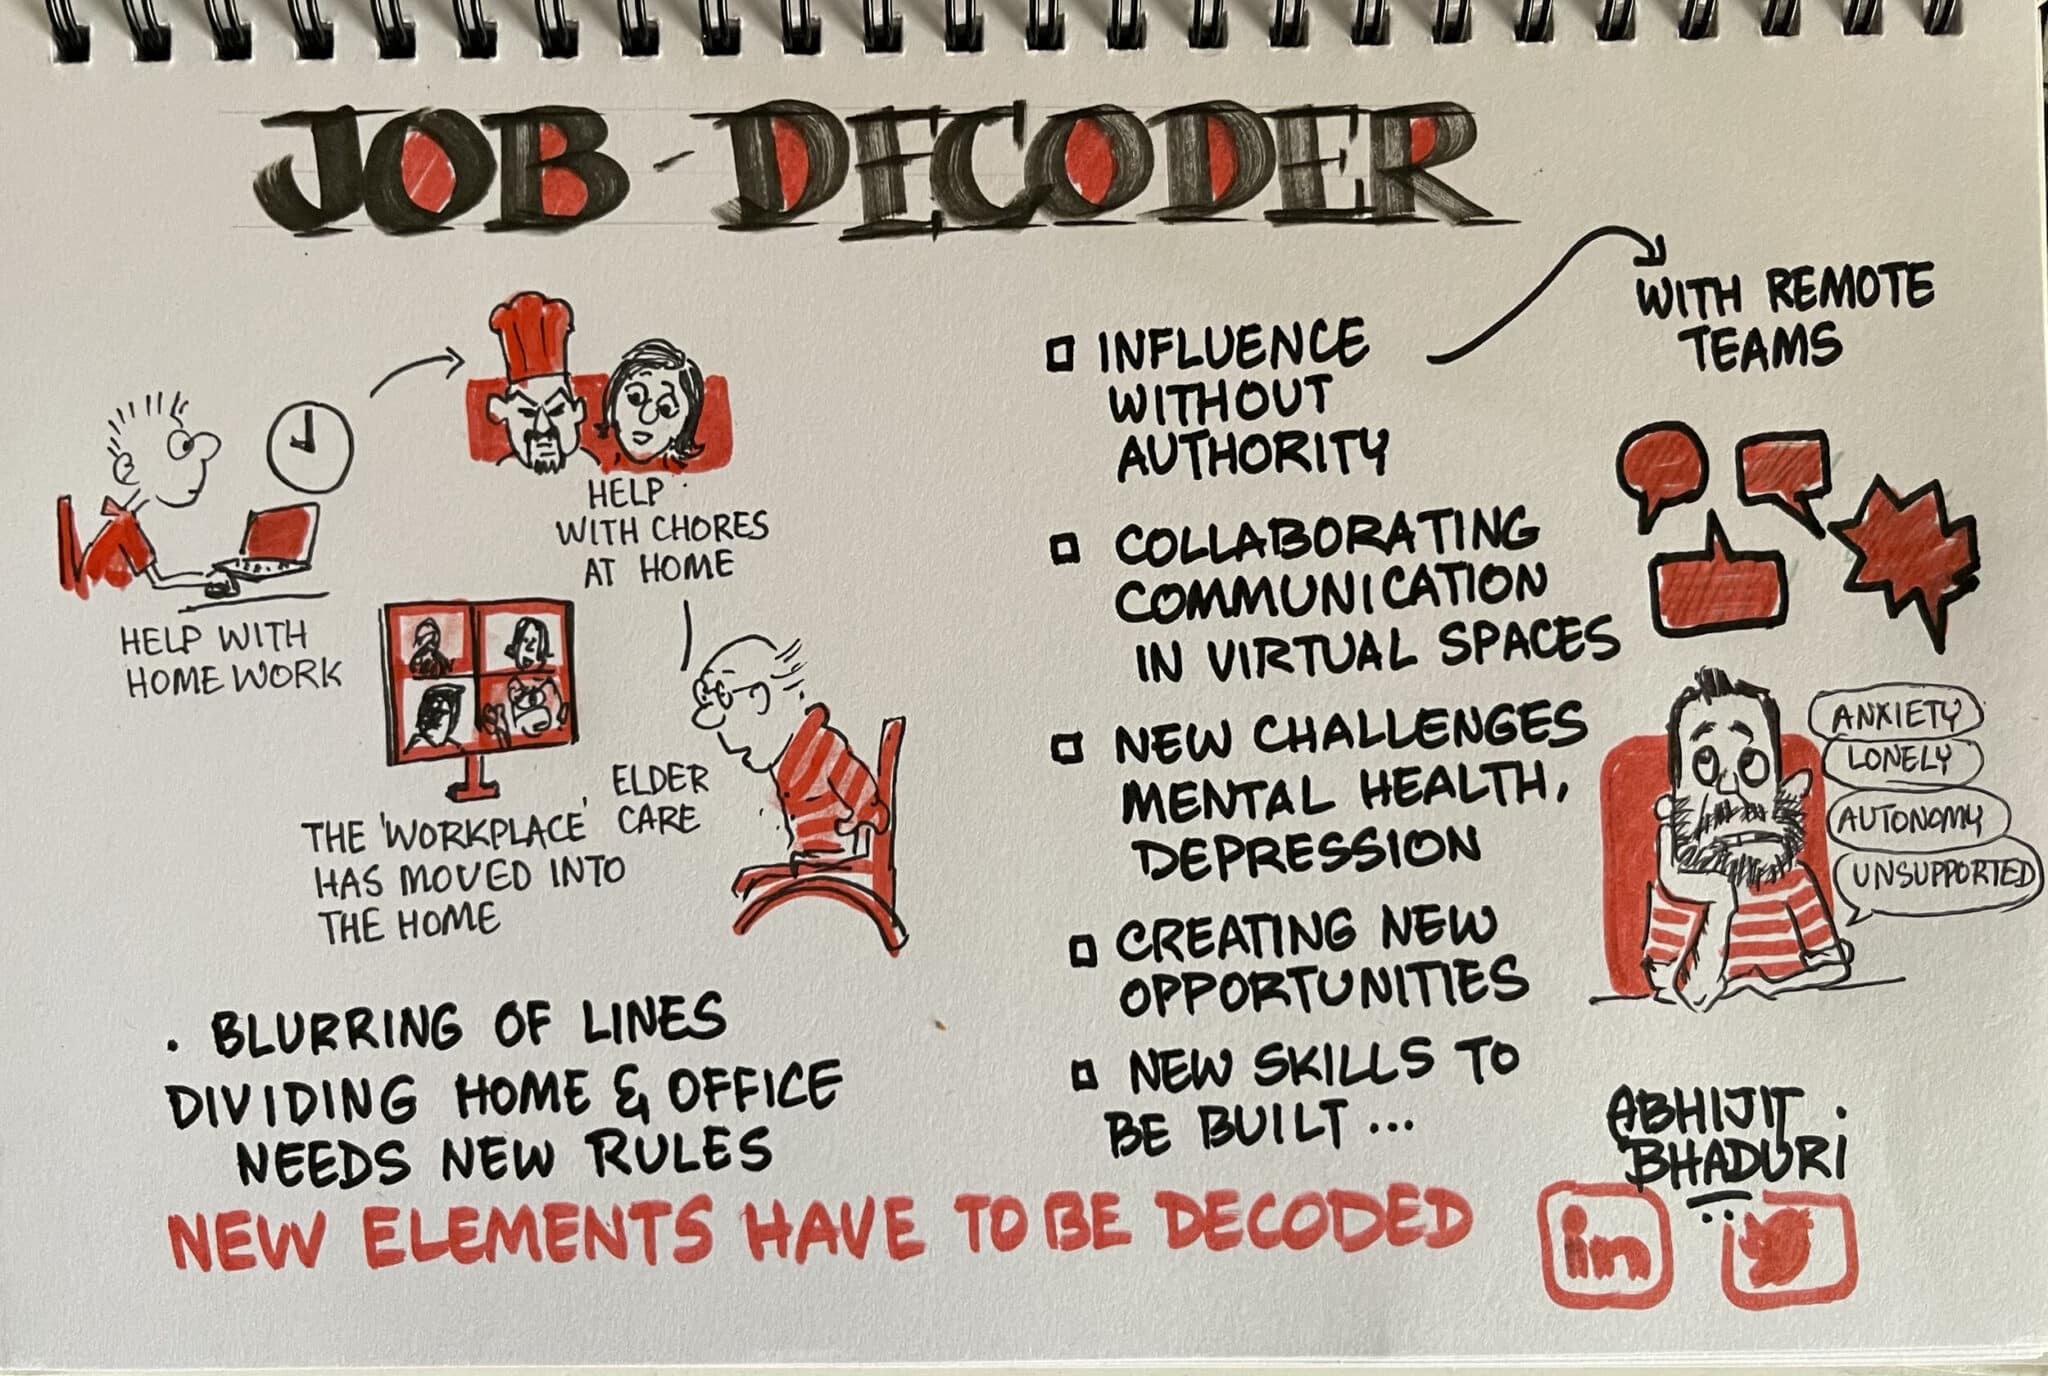 JOB-DECODER
HELP WITH
HOME WORK
HELP
WITH CHORES
AT HOME
ELDER
CARE
THE 'WORKPLACE'
HAS MOVED INTO
THE HOME
• BLURRING OF LINES
DIVIDING HOME & OFFICE
NEEDS NEW RULES
INFLUENCE
WITHOUT
AUTHORITY
WITH REMOTE
TEAMS
COLLABORATING
COMMUNICATION
IN VIRTUAL SPACES
NEW CHALLENGES
MENTAL HEALTH,
DEPRESSION
ANXIETY
LONELY
AUTONOMY
UNSUPPORTED
CREATING NEW
OPPORTUNITIES
NEW SKILLS TO
BE BUILT ...
NEW ELEMENTS HAVE TO BE DECODED
ABHIJIT
BHADURI
in